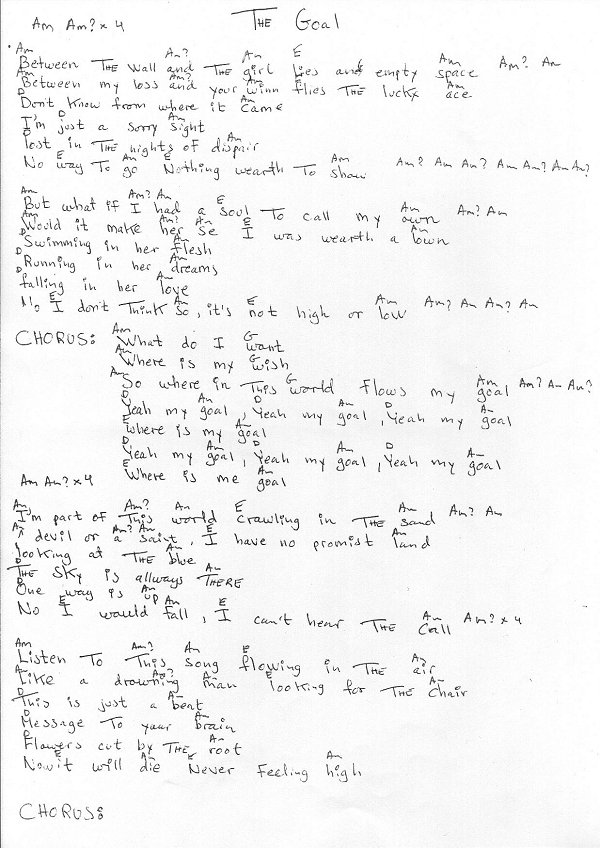 Am Am? x 4
THE Goal
Am Am? Am E Am Am? Am
Between THE wall and THE girl lies and empty space
Am Am? E Am
Between my loss and your winn flies THE luckx ace
D Am
Don't know from where it came
D Am
I'm just a sorry sight
D Am
lost in THE nights of dispair
E Am E Am Am? Am Am? Am Am? Am Am?
No way To go Nothing wearth To show
Am Am? Am E Am Am? Am
But what if I had a soul To call my own
Am Am? Am E Am
Would it make her se I was wearth a lown
D Am
Swimming in her flesh
D Am
Running in her dreams
D Am
falling in her love
E Am E Am Am? Am Am? Am
No I don't Think so, it's not high or low
CHORUS:
Am G
What do I want
Am G
Where is my wish
Am G Am Am? Am Am?
So where in This world flows my goal
D Am D D Am
Yeah my goal, Yeah my goal, Yeah my goal
E Am
Where is my goal
D Am Am D Am
Yeah my goal, Yeah my goal, Yeah my goal
E Am
Where is me goal
Am Am? x 4
Am Am? Am E Am Am? Am
I'm part of This world crawling in THE sand
Am Am? Am E Am
A devil or a saint, I have no promist land
D Am
looking at THE blue
D Am
THE Sky is allways THERE
D Am
One way is up
E Am E Am Am? x 4
No I would fall, I can't hear THE Call
Am Am? Am E Am
Listen To This song flowing in THE air
Am Am? Am E Am
Like a drowning man looking for THE Chair
D Am
This is just a beat
D Am
Message To your brain
D Am
Flowers cut by THE root
E Am E Am
Now it will die Never Feeling high
CHORUS: